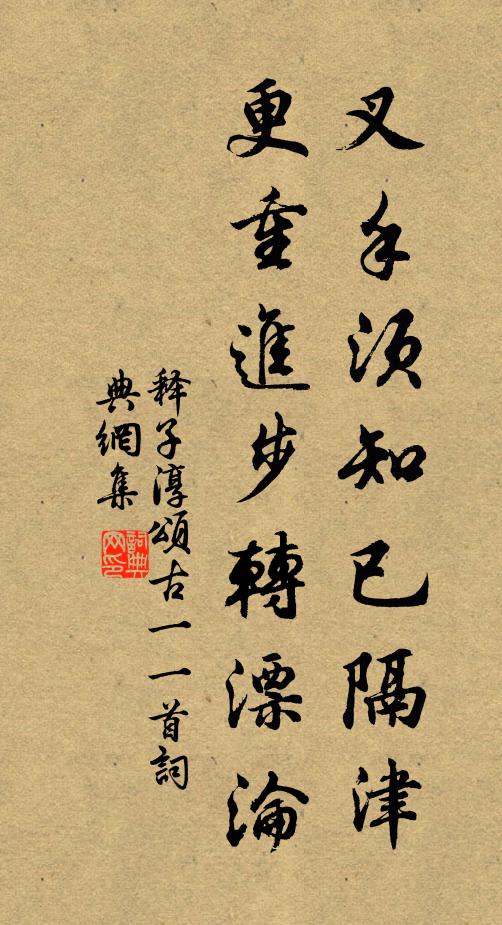 叉手須知已隔津
更重進步轉漂淪
釋子淳頌古一一首詞
典網集
詞典
网印